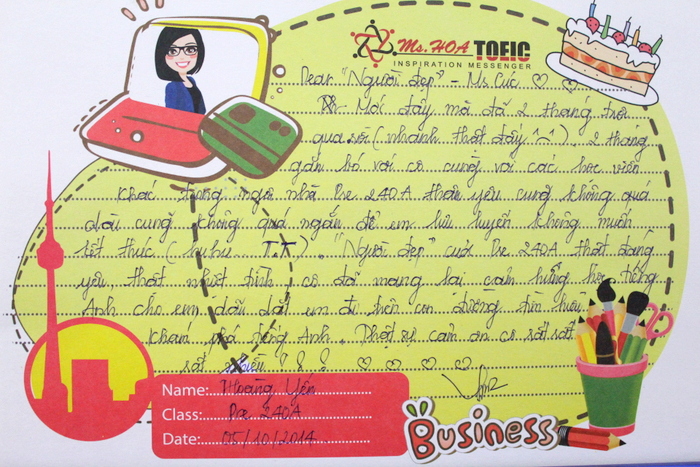 Ms. HOA TOEIC
INSPIRATION MESSENGER
Dear "Người đẹp" - Ms Cúc ♡ ♡
Mới đây mà đã 2 tháng trôi
qua rồi (nhanh thật đấy ^^). 2 tháng
gắn bó với cô cùng với các học viên
khác trong ngôi nhà Pre 240A thân yêu cũng không quá
dài cũng không quá ngắn để em lưu luyến không muốn
kết thúc (huhu T.T). "Người đẹp" của Pre 240A thật đáng
yêu, thật nhiệt tình, cô đã mang lại cảm hứng học tiếng
Anh cho em, dẫn dắt em đi trên con đường tìm hiểu
khám phá tiếng Anh. Thật sự cảm ơn cô rất rất
rất nhiều ! ! ! ♡ ♡ ♡ ♡ ♡
Name: Hoàng Yến
Class: Pre 240A
Date: 05/10/2014
Business